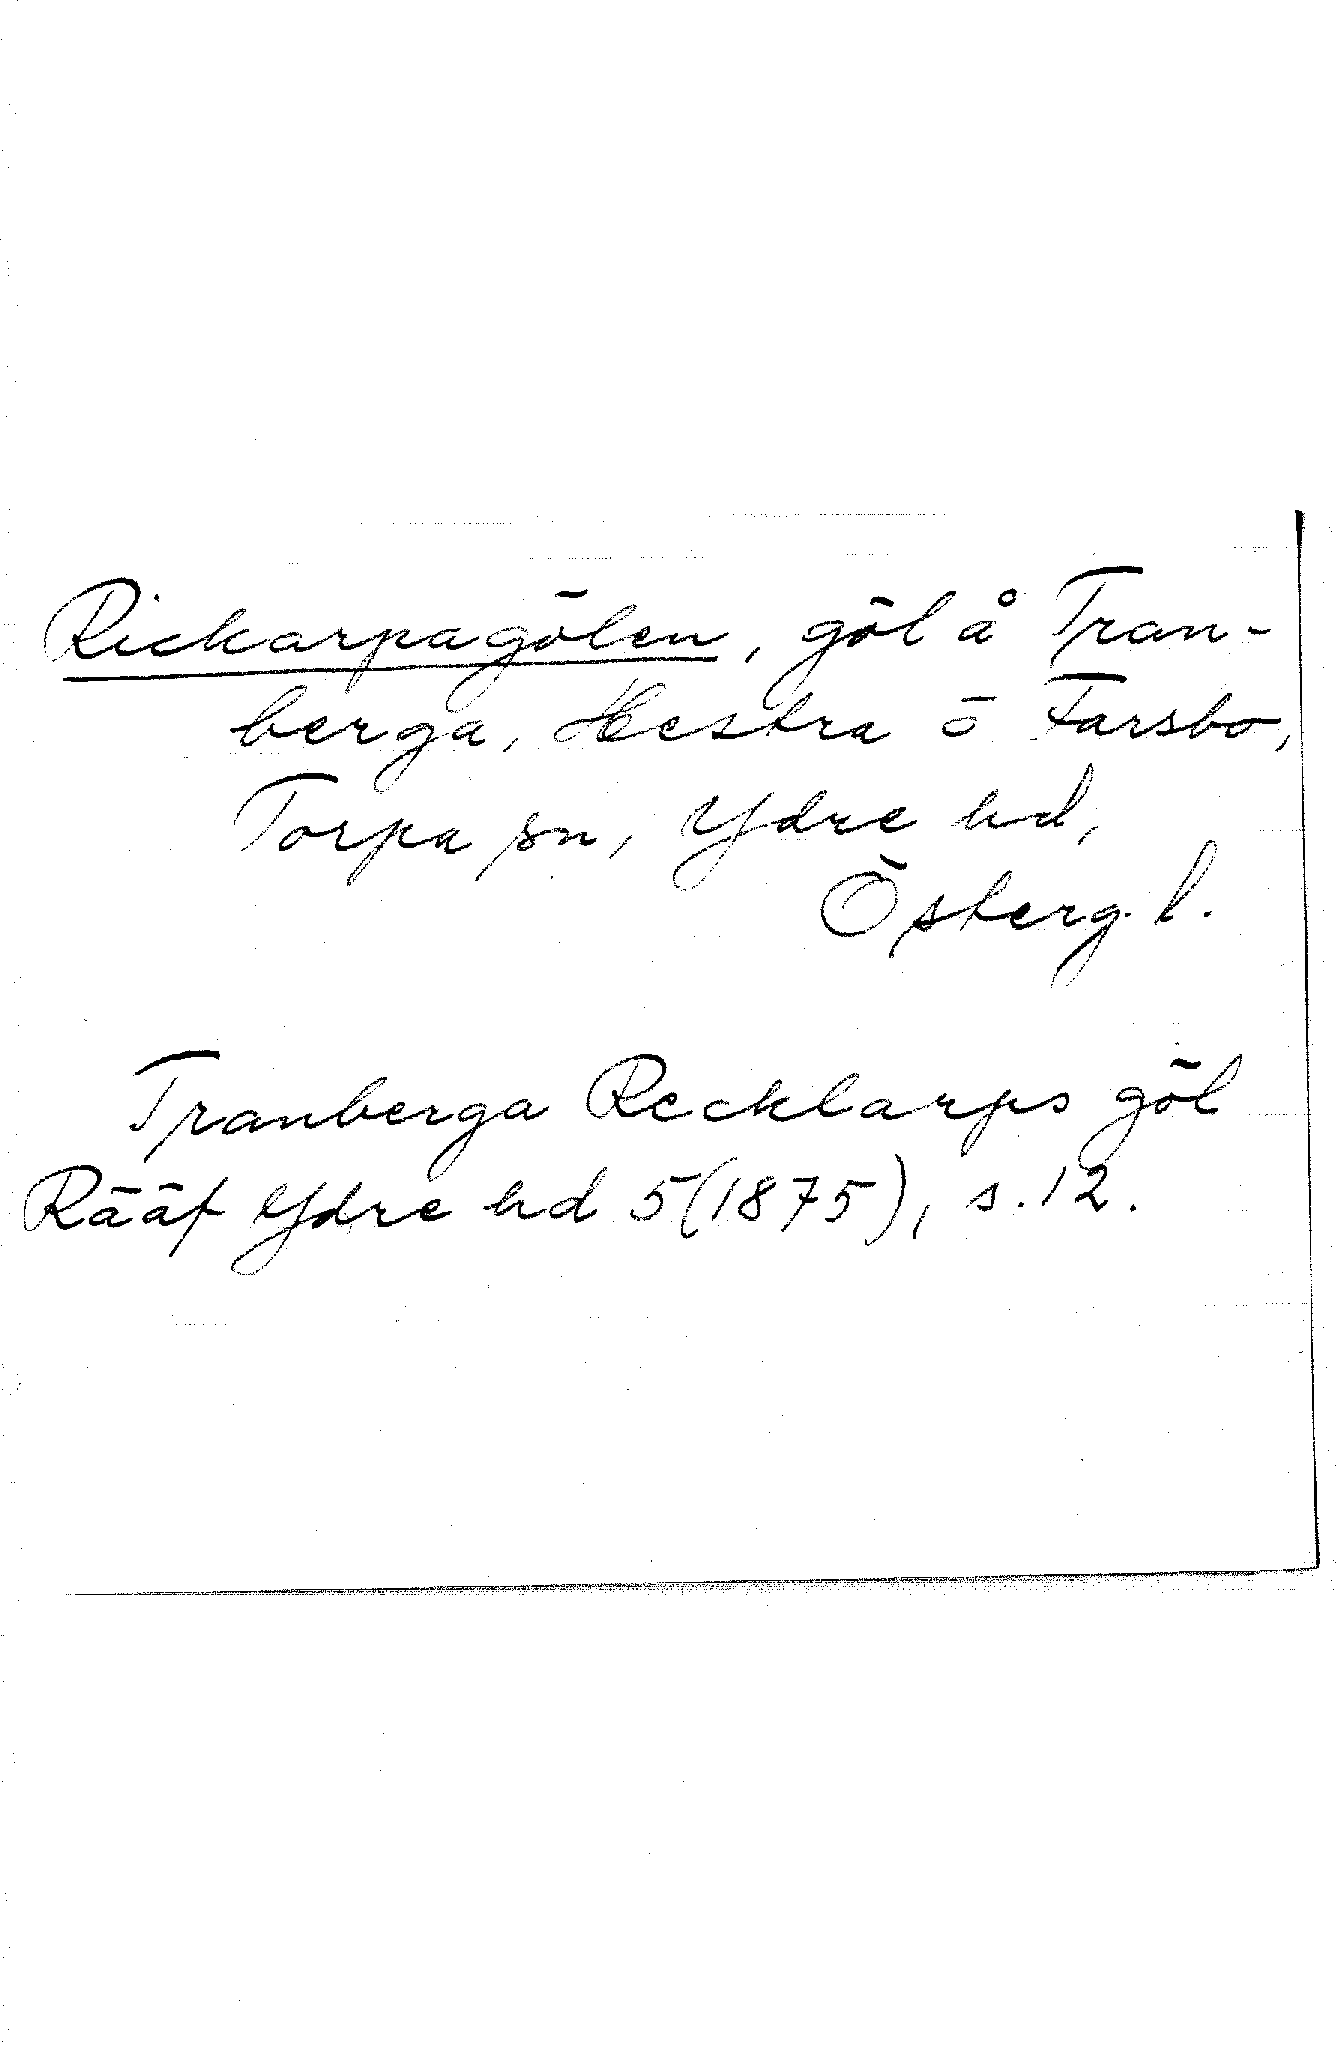 Rickarpagölen, göl å Tran-
berga, Hestra o Farsbo,
Torpa sn, Ydre hd,
Österg. l.
Tranberga Recklarps göl
Rääf Ydre hd 5(1875), s. 12.